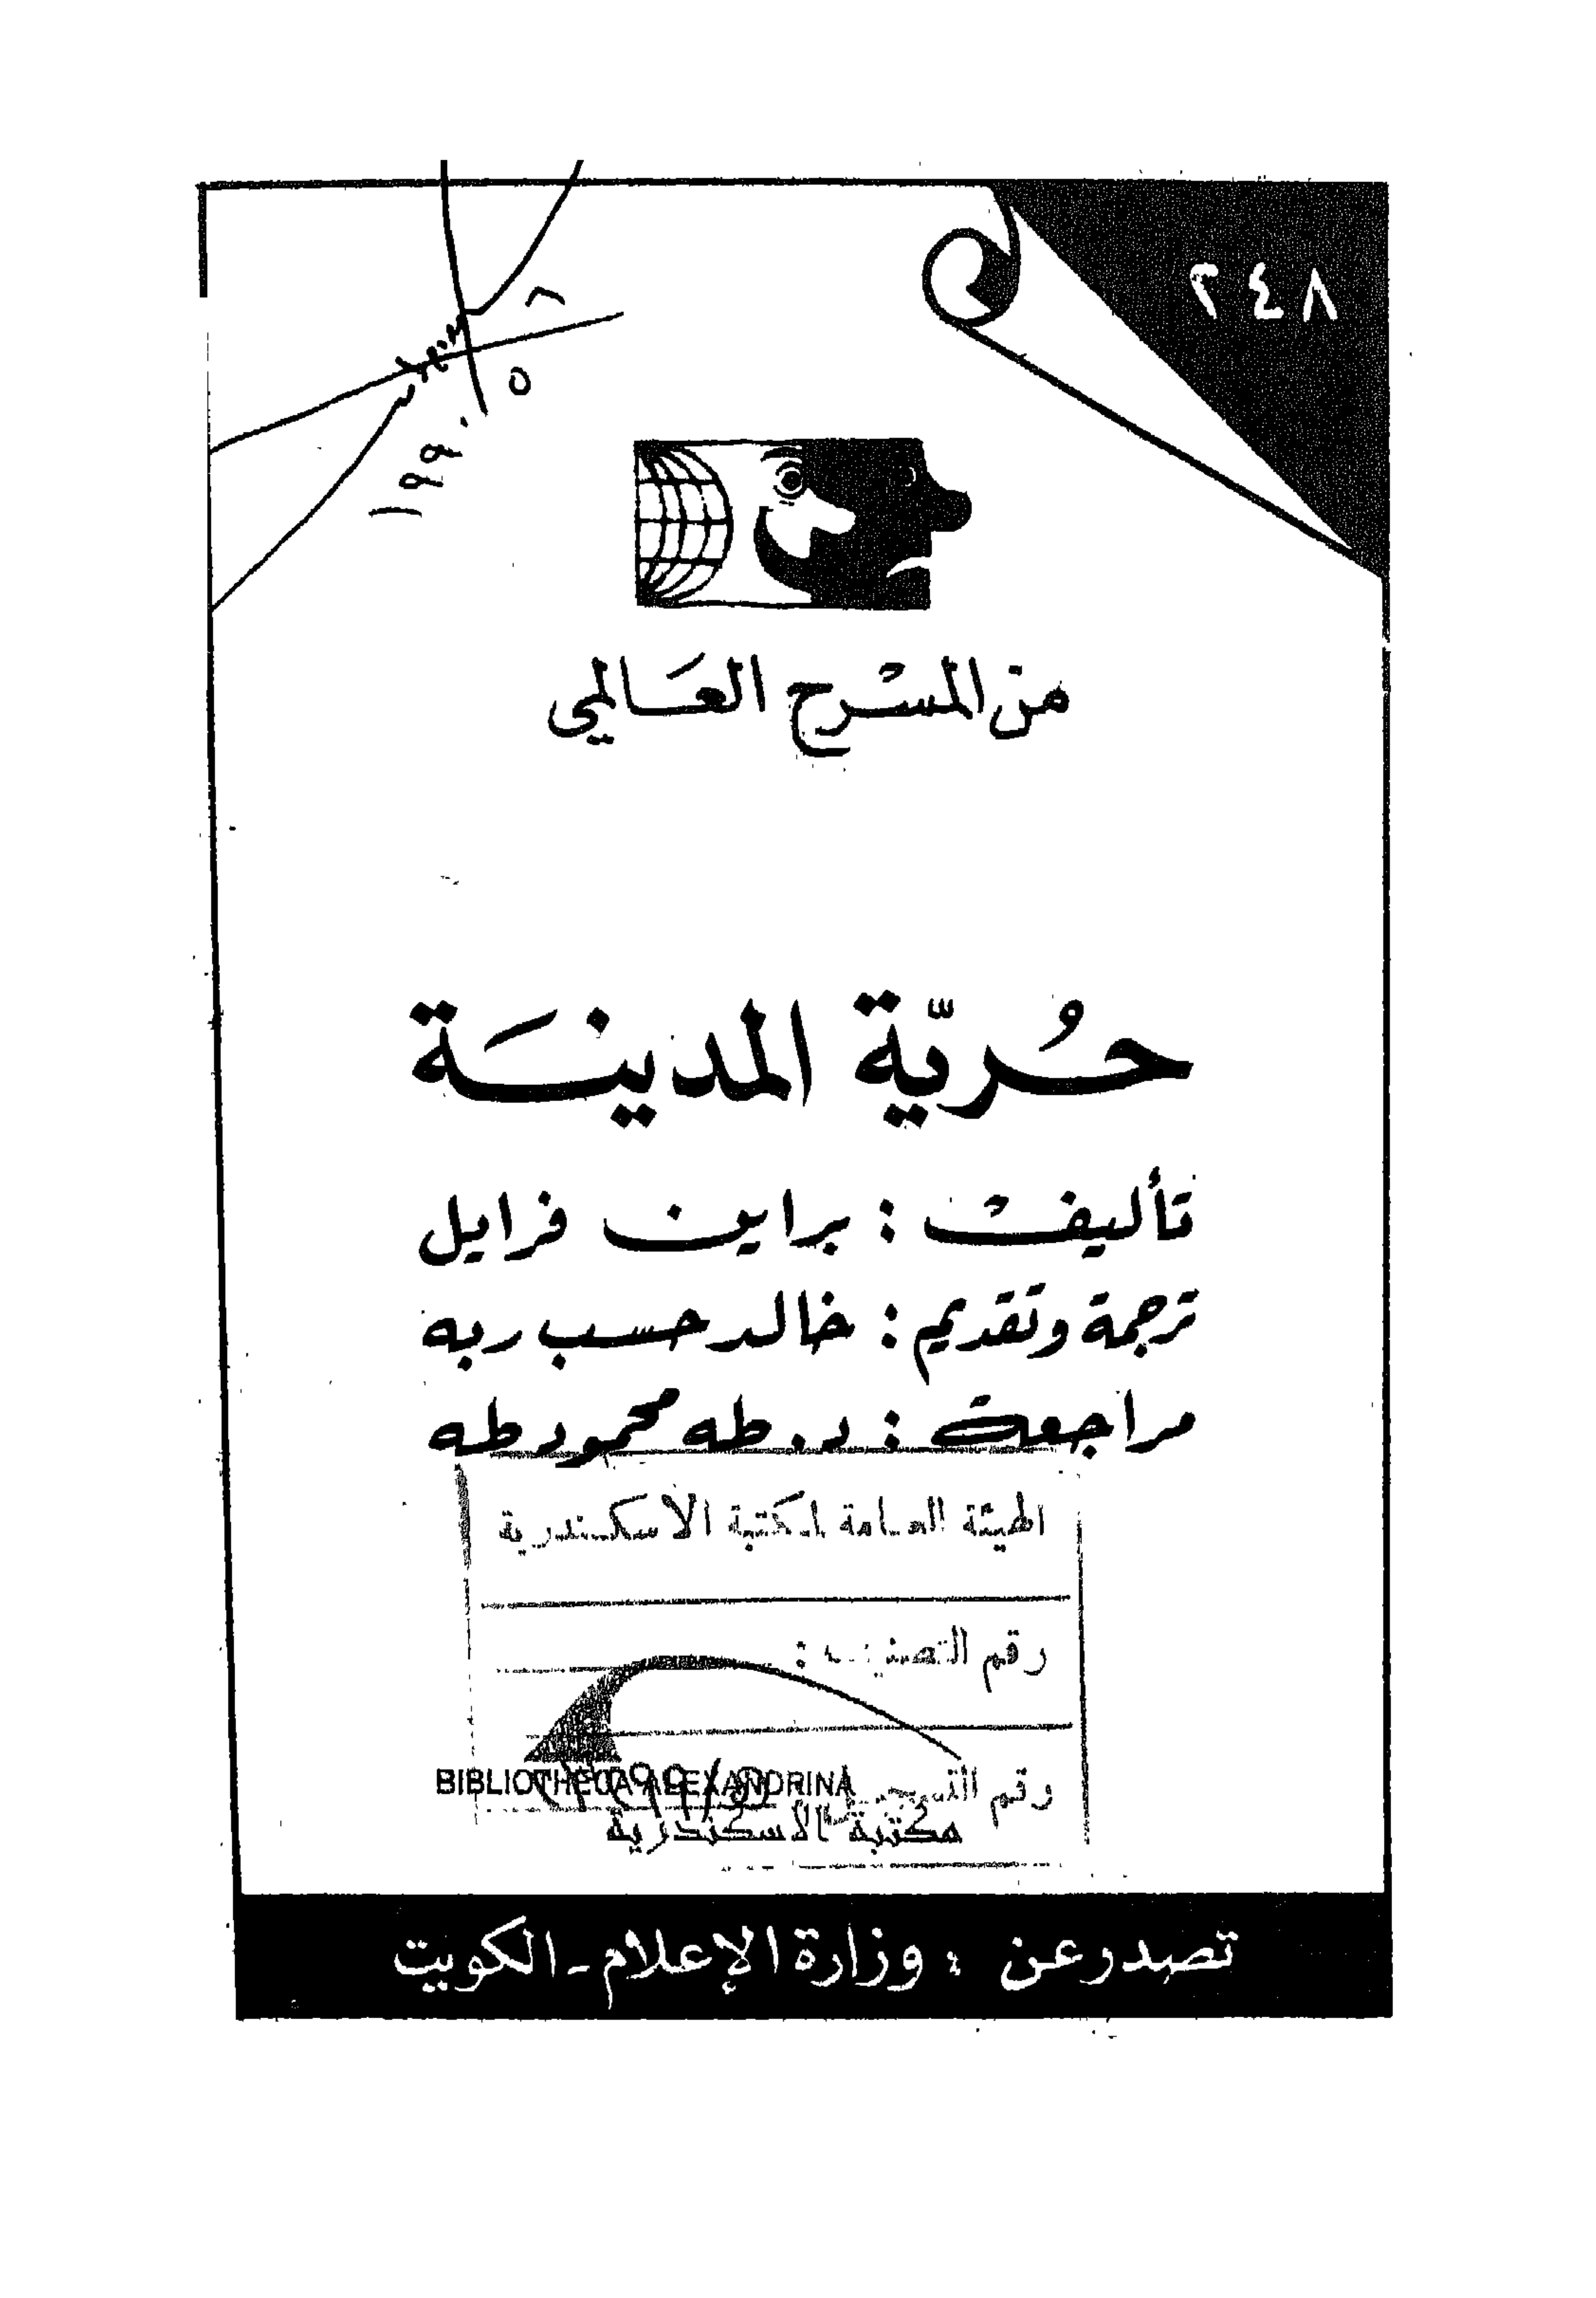 ٢٤٨
١٩٩٠
من المسرح العالمي
حُريّة المدينَة
تأليف : براين فرايل
ترجمة وتقديم : خالد حسب ربه
مراجعة : د. طه محمود طه
الهيئة العامة لمكتبة الاسكندرية
رقم التصنيف :
رقم التسجيل
BIBLIOTHECA ALEXANDRINA
مكتبة الاسكندرية
تصدر عن : وزارة الإعلام - الكويت